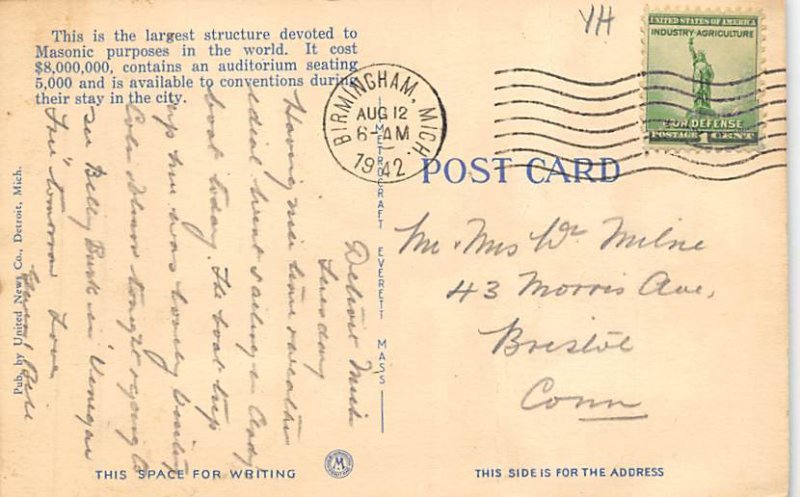 This is the largest structure devoted to
Masonic purposes in the world. It cost
$8,000,000, contains an auditorium seating
5,000 and is available to conventions during
their stay in the city.
YH
UNITED STATES OF AMERICA
INDUSTRY-AGRICULTURE
FOR DEFENSE
POSTAGE 1 CENT
BIRMINGHAM, MICH.
AUG 12
6-AM
1942
POST CARD
Detroit Mich
Tuesday
Having nice time weather
ideal went sailing in
boat today. The boat trip
up here was lovely
tonight & going to
see Billy Burk in "Vinegar
Tree" tomorrow Love
Mr. Mrs Wm Milne
43 Morris Ave,
Bristol
Conn
Pub. by United News Co., Detroit, Mich.
METROCRAFT EVERETT MASS
THIS SPACE FOR WRITING
M
THIS SIDE IS FOR THE ADDRESS